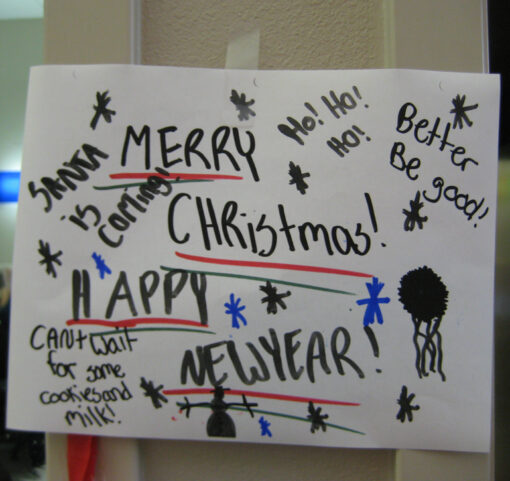 MERRY
CHRistmas!
HAPPY
NEWYEAR!
SANTA
is
coming!
Ho! Ho!
HO!
Better
Be good!
CAN't wait
for some
cookies and
milk!